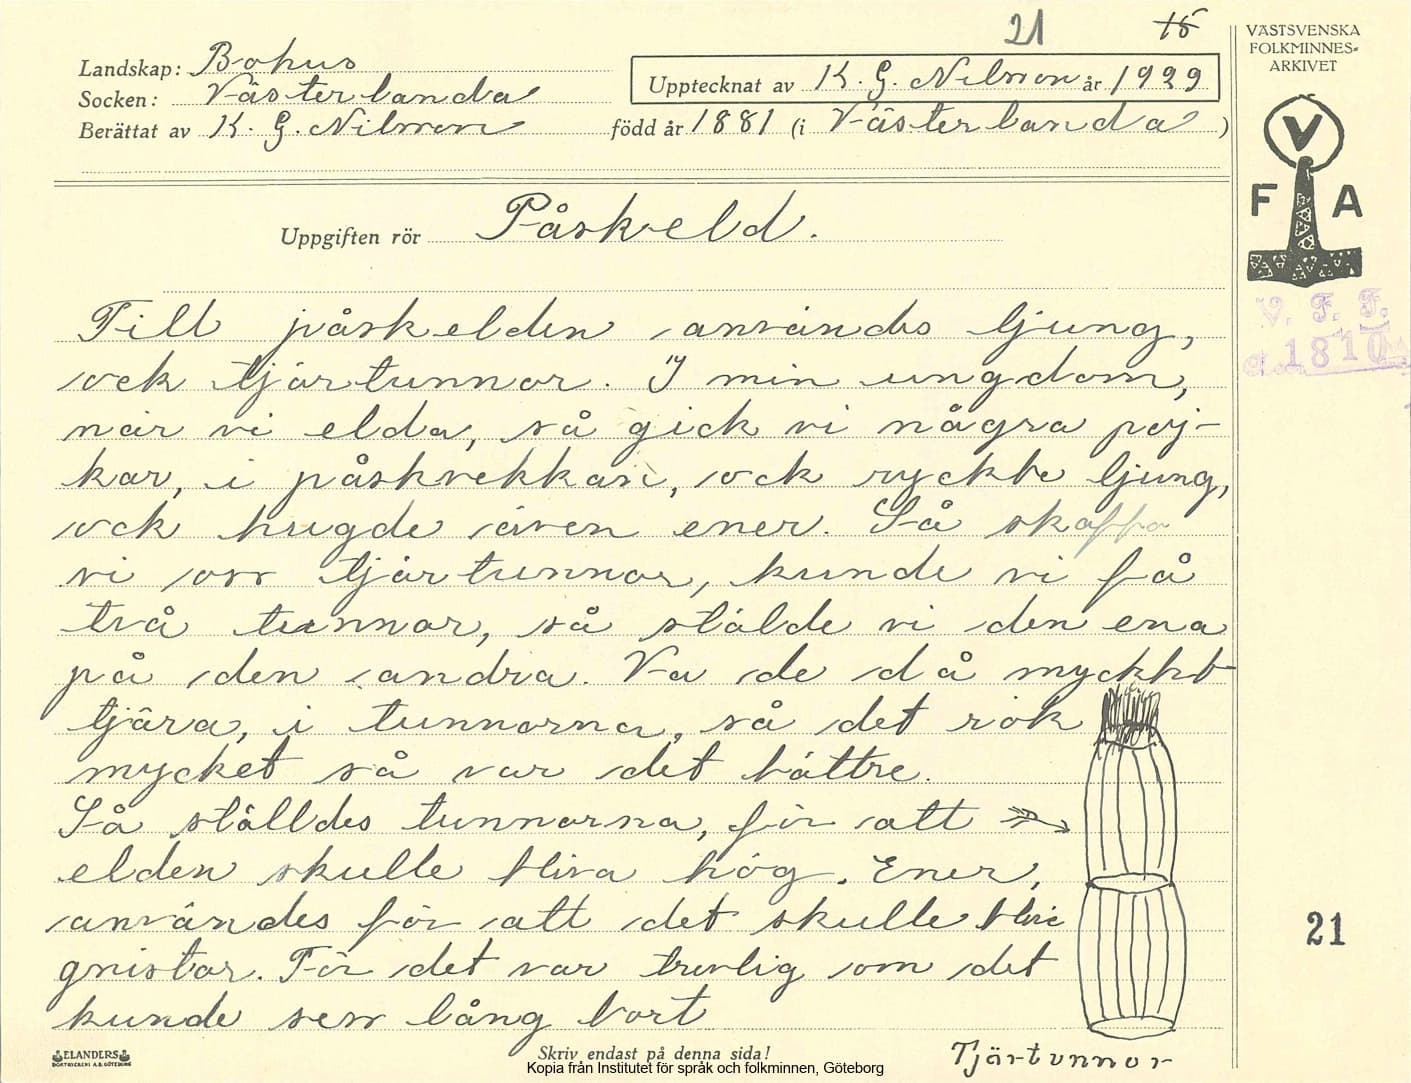 21 15
VÄSTSVENSKA
FOLKMINNES-
ARKIVET
Landskap: Bohus
Socken: Västerlanda
Upptecknat av K. G. Nilsson år 1929
Berättat av K. G. Nilsson född år 1881 (i Västerlanda)
V
F A
Uppgiften rör Påskeld.
V. F. F.
1810
Till påskelden användes ljung,
ock tjärtunnor. I min ungdom,
när vi elda, så gick vi några poj-
kar, i påskvekkan, ock ryckte ljung,
ock hugde även ener. Så skaffa
vi oss tjärtunnor, kunde vi få
två tunnor, så stälde vi den ena
på den andra. Va de då myckket
tjära, i tunnorna, så det rök
mycket så var det bättre.
Så ställdes tunnorna, för att
elden skulle bliva hög. Ener,
användes för att det skulle bliv
gnistor. För det var trevlig om det
kunde sess lång bort
21
Tjärtunnor
ELANDERS
BOKTRYCKERI A.B. GÖTEBORG
Skriv endast på denna sida!
Kopia från Institutet för språk och folkminnen, Göteborg